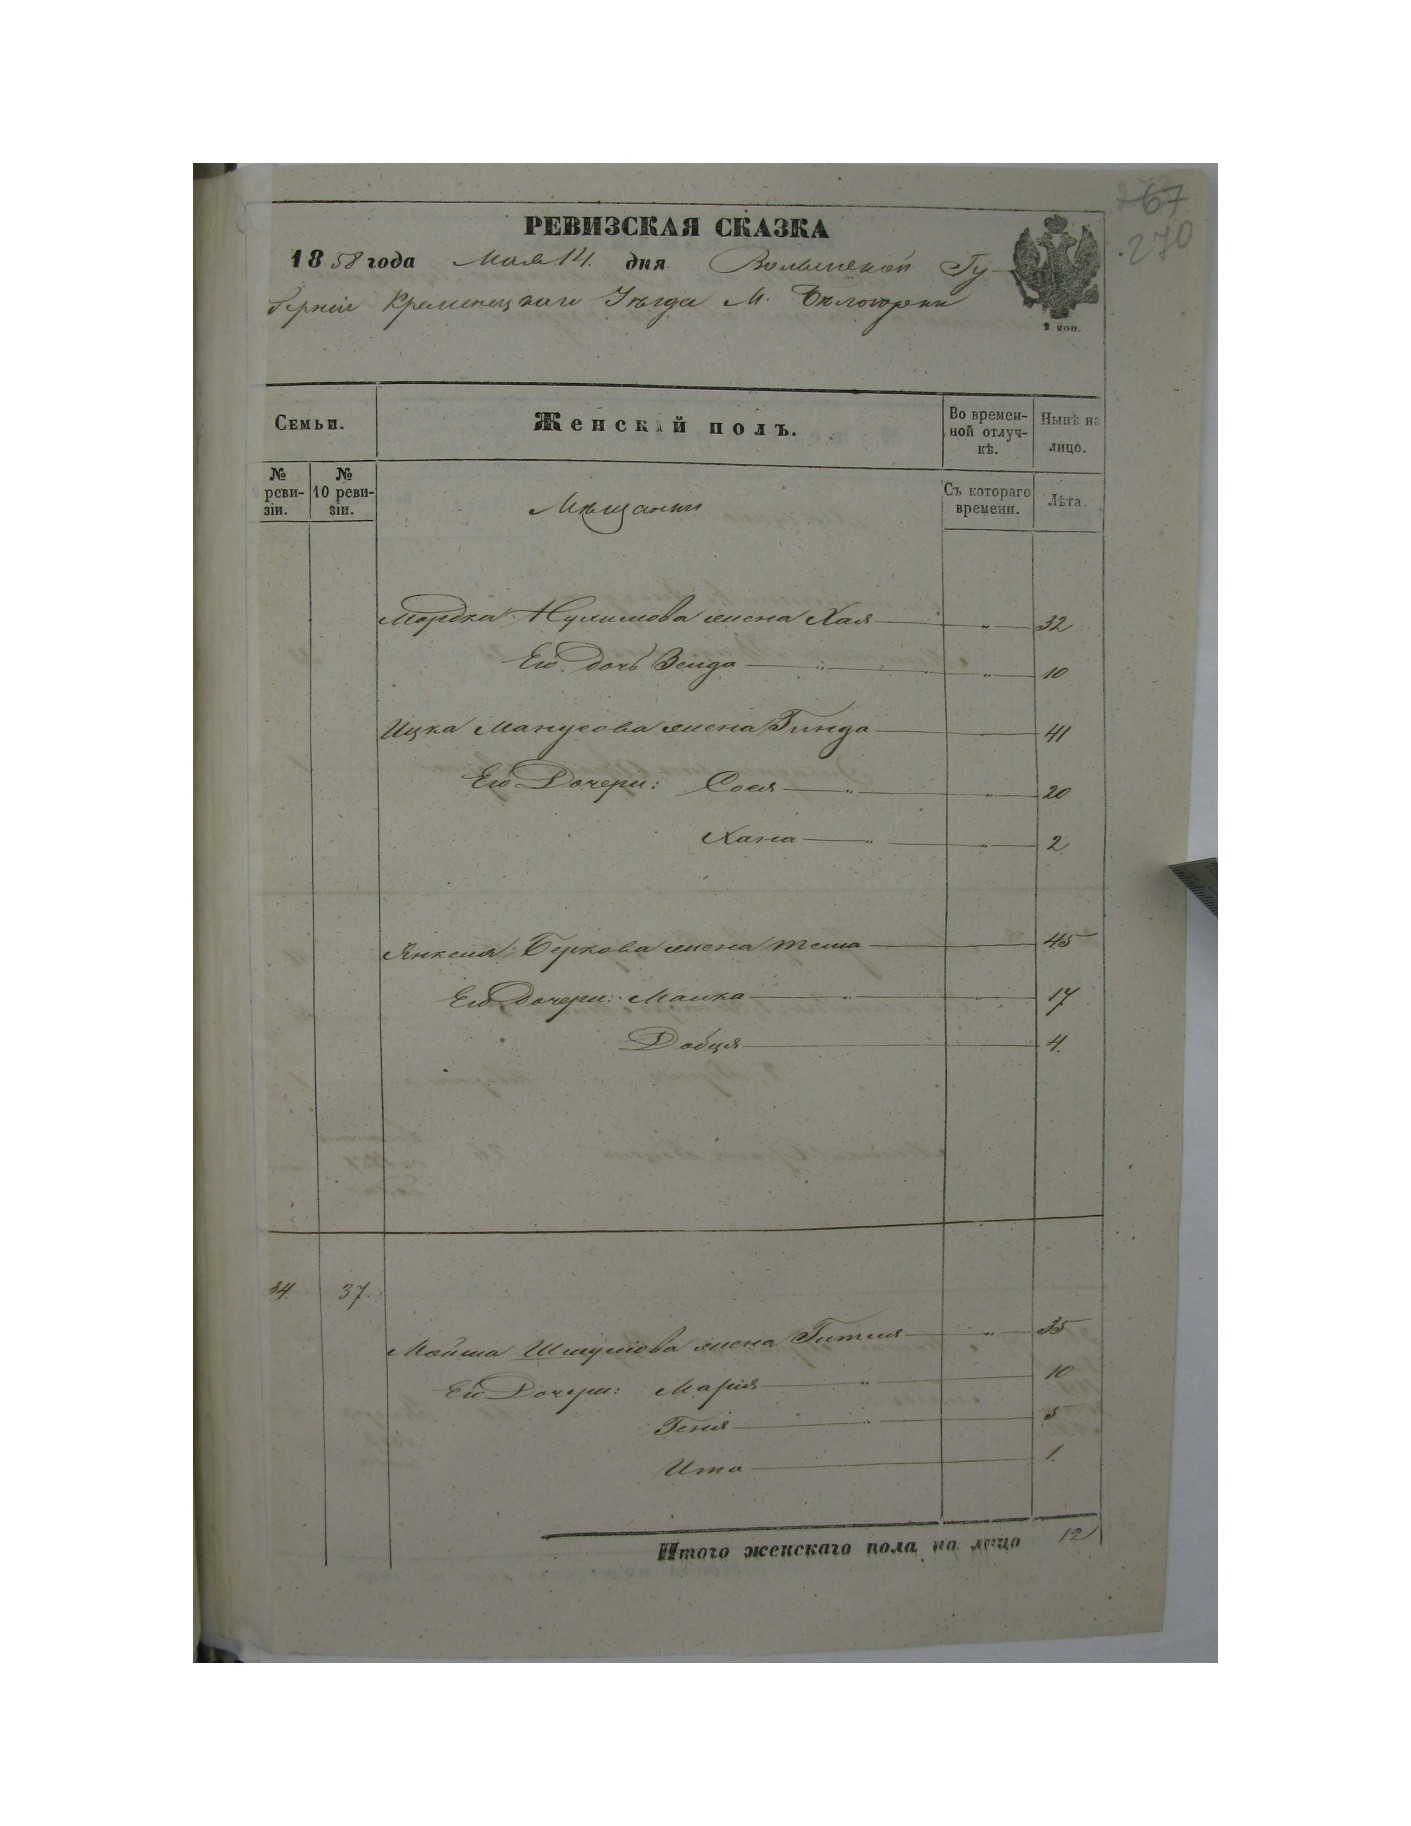 67
270
РЕВИЗСКАЯ СКАЗКА
1858 года Мая 14. дня Волынской Гу-
берніи Кременецкаго Уѣзда М. Бѣлогорки
2 коп.
Семьи. Женскій полъ. Во времен-
ной отлуч-
кѣ. Нынѣ на
лицо.
№
реви-
зіи. №
10 реви-
зіи. Мѣщанки Съ котораго
времени. Лѣта.
Мордка Нухимова жена Хая " 32
Его дочь Зелда " " 10
Ицка Манусова жена Гинда 41
Его Дочери: Сося " " 20
Хана " " 2
Янкеля Беркова жена 45
Его Дочери: Малка " " 17
Добця 4.
34. 37.
Мойша Шмулова жена Гитля " 35
Его Дочери: Марія " 10
Генія " 5
Ита 1.
Итого женскаго пола на лицо 12